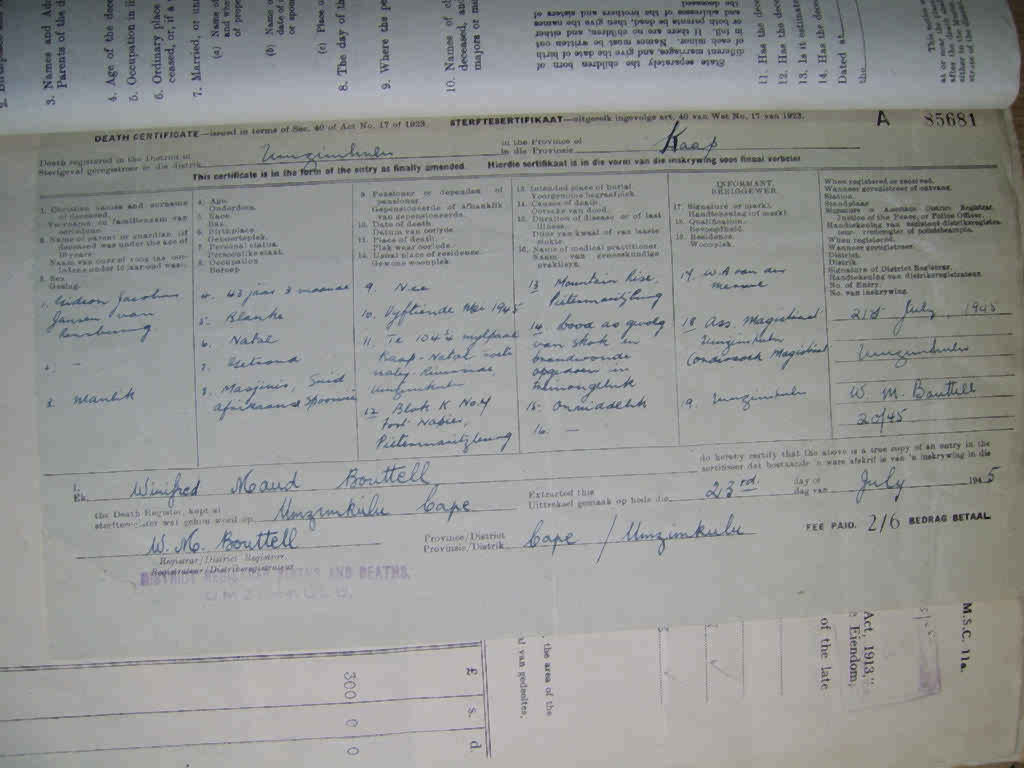 3. Names and
Parents of the
4. Age of the
5. Occupation in
6. Ordinary place
ceased, or, if a
7. Married, or
(a) Name of
(b) Name of
or
(c) Place of
8. The day of the
9. Where the
10. Names of
deceased, and
majors or
State separately the children born of
different marriages, and give the date of birth
of each minor. Names must be written out
in full. If there are no children, and either
or both parents be dead, then give the names
and addresses of the brothers and sisters of
the deceased
11. Has the
12. Has the
13. Is it
14. Has the
Dated at
the
DEATH CERTIFICATE—issued in terms of Sec. 40 of Act No. 17 of 1923. STERFTESERTIFIKAAT—uitgereik ingevolge art. 40 van Wet No. 17 van 1923.
A 85681
Death registered in the District of
Sterfgeval geregistreer in die distrik
Umzimkulu
in the Province of
in die Provinsie
Kaap
This certificate is in the form of the entry as finally amended. Hierdie sertifikaat is in die vorm van die inskrywing soos finaal verbeter
1. Christian names and surname
of deceased.
Voorname en familienaam van
oorledene.
2. Name of parent or guardian, if
deceased was under the age of
10 years.
3. Sex.
Geslag.
4. Age.
Ouderdom.
5. Race.
Ras.
6. Birthplace.
Geboorteplek.
7. Personal status.
Persoonlike staat.
8. Occupation
Beroep
9. Pensioner or dependent of
pensioner.
Gepensioeneerde of afhanklik
van gepensioeneerde.
10. Date of death.
Datum van oorlyde.
11. Place of death.
Plek waar oorlede.
12. Usual place of residence.
Gewone woonplek.
13. Intended place of burial
Voorgenome begraafplek.
14. Causes of death.
Oorsake van dood.
15. Duration of disease or of last
illness.
Duur van kwaal of van laaste
siekte.
16. Name of medical practitioner.
Naam van geneeskundige
praktisyn.
INFORMANT
BERIGGEWER
17. Signature or mark.
Handtekening of merk.
18. Qualification.
Bevoegdheid.
19. Residence.
Woonplek.
When registered or received.
Wanneer geregistreer of ontvang.
Station.
Standplaas.
Signature of Assistant District Registrar,
Justice of the Peace, or Police Officer.
When registered.
Wanneer geregistreer.
District.
Distrik.
Signature of District Registrar.
Handtekening van distriksregistrateur.
No. of Entry.
No. van inskrywing.
1. Gideon Jacobus
Jansen van
Rensburg
2. -
3. Manlik
4. 43 jaar 3 maande
5. Blanke
6. Natal
7. Getroud
8. Masjinis, Suid
Afrikaanse Spoorweë
9. Nee
10. Vyftiende Mei 1945
11. Te 104½ mylpaal
Kaap-Natal
Umzimkulu
12. Blok K No. 4
Fort Napier,
Pietermaritzburg
13 Mountain Rise,
Pietermaritzburg
14. Dood as gevolg
van skok en
brandwonde
opgedoen in
treinongeluk
15. Onmiddelik
16. —
17. W.A van der
Merwe
18 Ass. Magistraat
Umzimkulu
19. Umzimkulu
21st July, 1945
Umzimkulu
W. M. Bouttell
20/45
I,
Ek,
Winifred Maud Bouttell
do hereby certify that the above is a true copy of an entry in the
sertifiseer dat bostaande 'n ware afskrif is van 'n inskrywing in die
the Death Register, kept at
sterfteregister wat gehou word op
Umzimkulu Cape
Extracted this
Uittreksel gemaak op hede die
23rd.
day of
dag van
July
1945
W. M. Bouttell
Registrar/District Registrar.
Registrateur/Distriksregistrateur
Province/District
Provinsie/Distrik
Cape / Umzimkulu
FEE PAID. 2/6 BEDRAG BETAAL
DISTRICT REGISTRAR BIRTHS AND DEATHS.
UMZIMKULU.
£ s. d.
300 0 0
the area of the
van gedeeltes,
Act, 1913,"
Eiendom,
of the late
M.S.C. 11a.